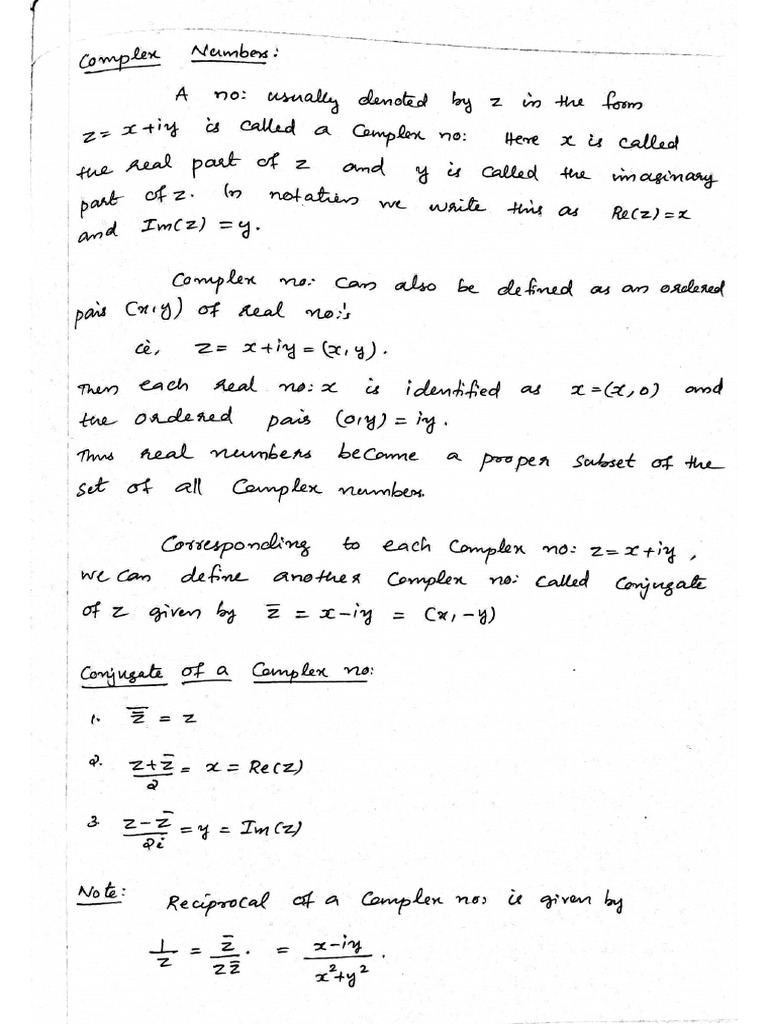 Complex Numbers:
A no: usually denoted by z in the form
z = x+iy is called a Complex no: Here x is called
the real part of z and y is called the imaginary
part of z. In notation we write this as Re(z) = x
and Im(z) = y.
Complex no: can also be defined as an ordered
pair (x,y) of real no:s
ie, z = x+iy = (x, y).
Then each real no: x is identified as x = (x, 0) and
the ordered pair (0,y) = iy.
Thus real numbers become a proper subset of the
set of all Complex numbers.
Corresponding to each Complex no: z = x+iy,
we can define another Complex no: called Conjugate
of z given by z̅ = x-iy = (x, -y)
Conjugate of a Complex no:
1. z̅̅ = z
2. (z+z̅)/2 = x = Re(z)
3. (z-z̅)/2i = y = Im(z)
Note: Reciprocal of a Complex no: is given by
1/z = z̅/zz̅. = (x-iy)/(x²+y²).